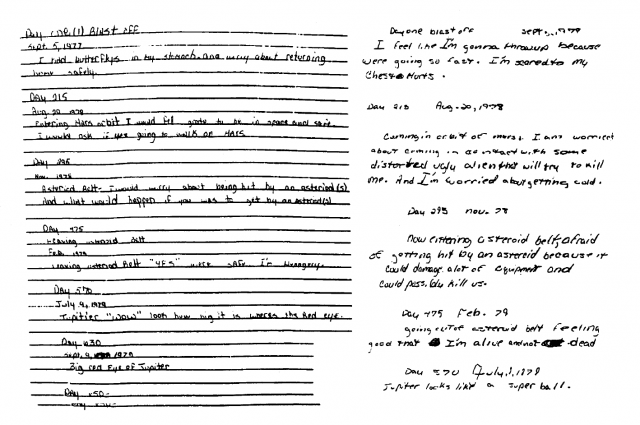 Day one (1) Blast off
Sept. 5, 1977
I had butterflys in my stomach. and worry about returning
home safely.
DAy 215
Aug. 20 1978
Entering Mars orbit I would fel goote to be in space and
I would ask if yes going to walk on MARS.
Day 295
Nov. 1978
Asteried Belt- I would worry about being hit by an asteriod(s)
And what would happen if you was to get by an asteriod(s)
DAy 475
Leaving asteriod Belt
Feb. 1979
Leaving asteriod Belt "YES" were safe I'm Hungrey.
DAy 570
July 9, 1979
Jupitier "WOW" look how big it is wheres the Red eye.
Day 630
Sept. 1979
Big red Eye of Jupiter
DAy 650-
Day one blast off sept. 1979
I feel like I'm gonna throwup because
were going so fast. I'm scared to my
Chest Hurts.
Day 215 Aug. 20, 1978
Cuming in orbit of mars. I am worried
about coming in contact with some
distorted ugly alien that will try to kill
me. And I'm worried about getting cold.
Day 295 nov. 78
Now entering asteroid belt, afraid
of getting hit by an asteroid because it
could damage alot of equipment and
could possibly kill us.
Day 475 Feb. 79
going out of asteroid belt feeling
good that I'm alive and not dead
Day 570 July, 9, 1979
Jupiter looks like a super ball.